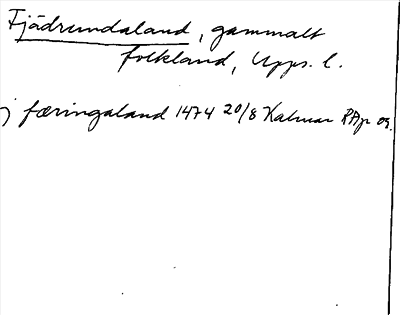 Fjädrundaland, gammalt
folkland, Upps. l.
j færingaland 1474 20/8 Kalmar RAp or.